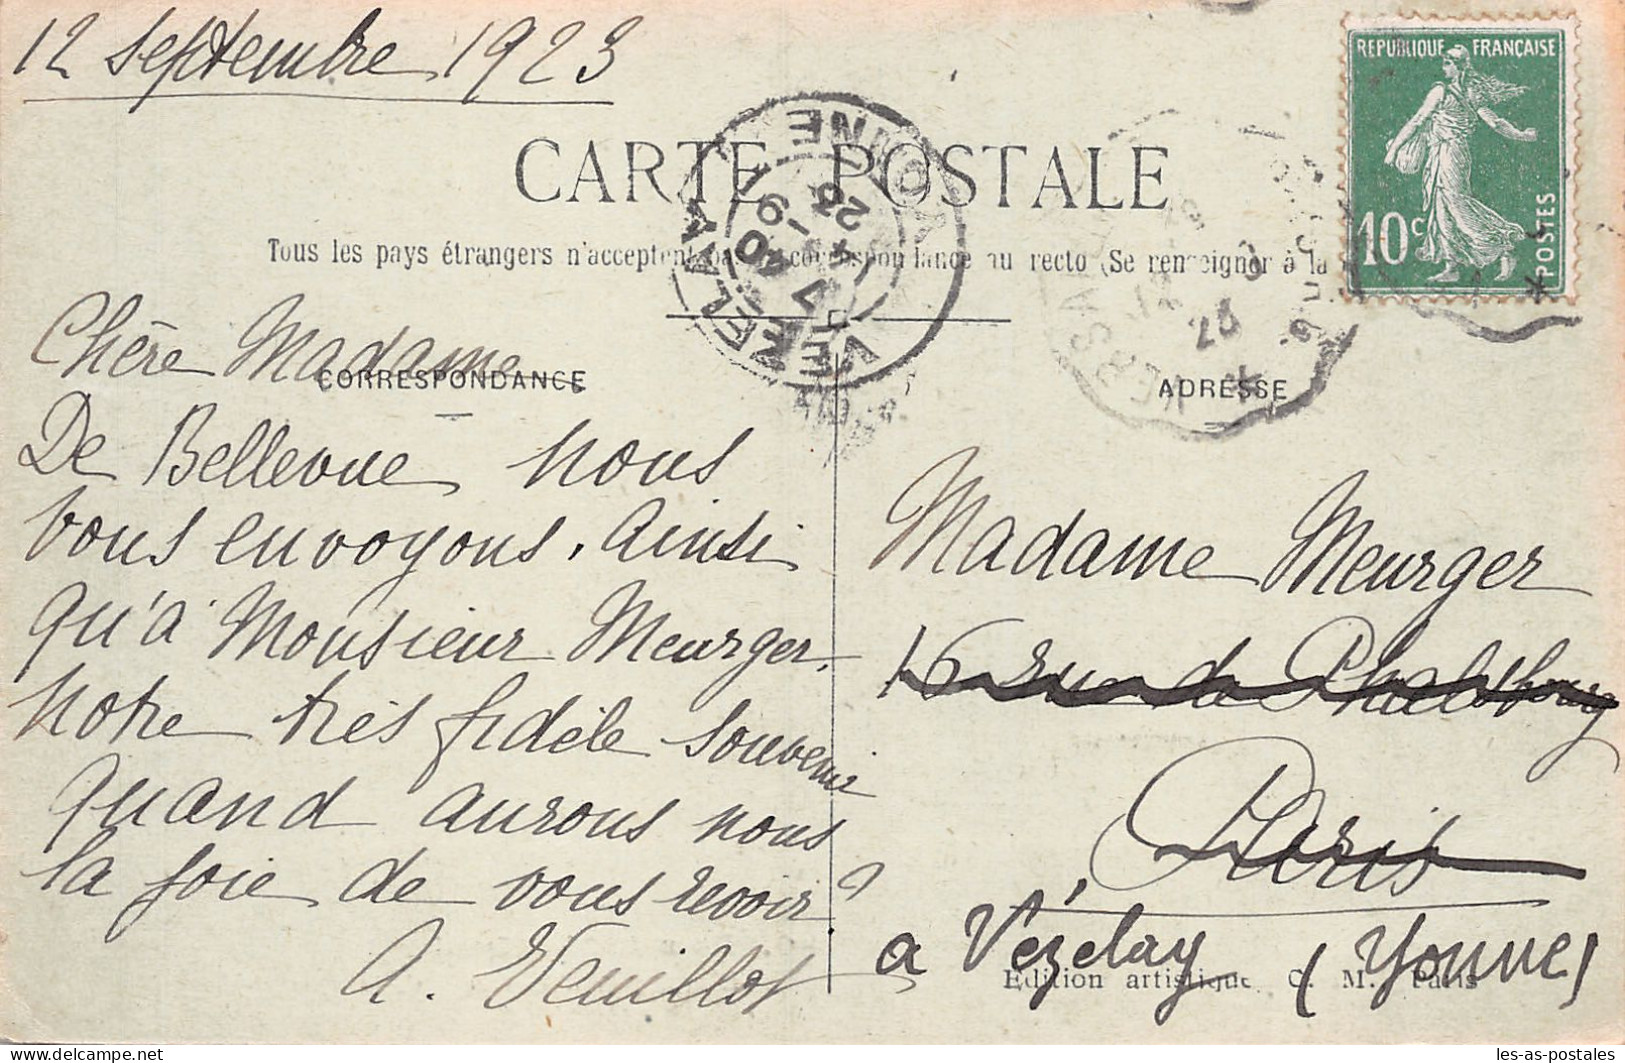 12 Septembre 1923
REPUBLIQUE FRANÇAISE
10c
POSTES
CARTE POSTALE
Tous les pays étrangers n'acceptent pas la correspondance au recto (Se renseigner à la
VEZELAY
YONNE
17 40
14 -9
23
VERSA
CORRESPONDANCE
ADRESSE
Chère Madame
De Bellevue nous
vous envoyons, ainsi
qu'à Monsieur Meurger.
notre très fidèle souvenir
quand aurons nous
la joie de vous revoir?
A. Veuillot
Madame Meurger
16 rue de Phalsbourg
Paris
a Vézelay (Yonne)
Edition artistique C. M. Paris
les-as-postales